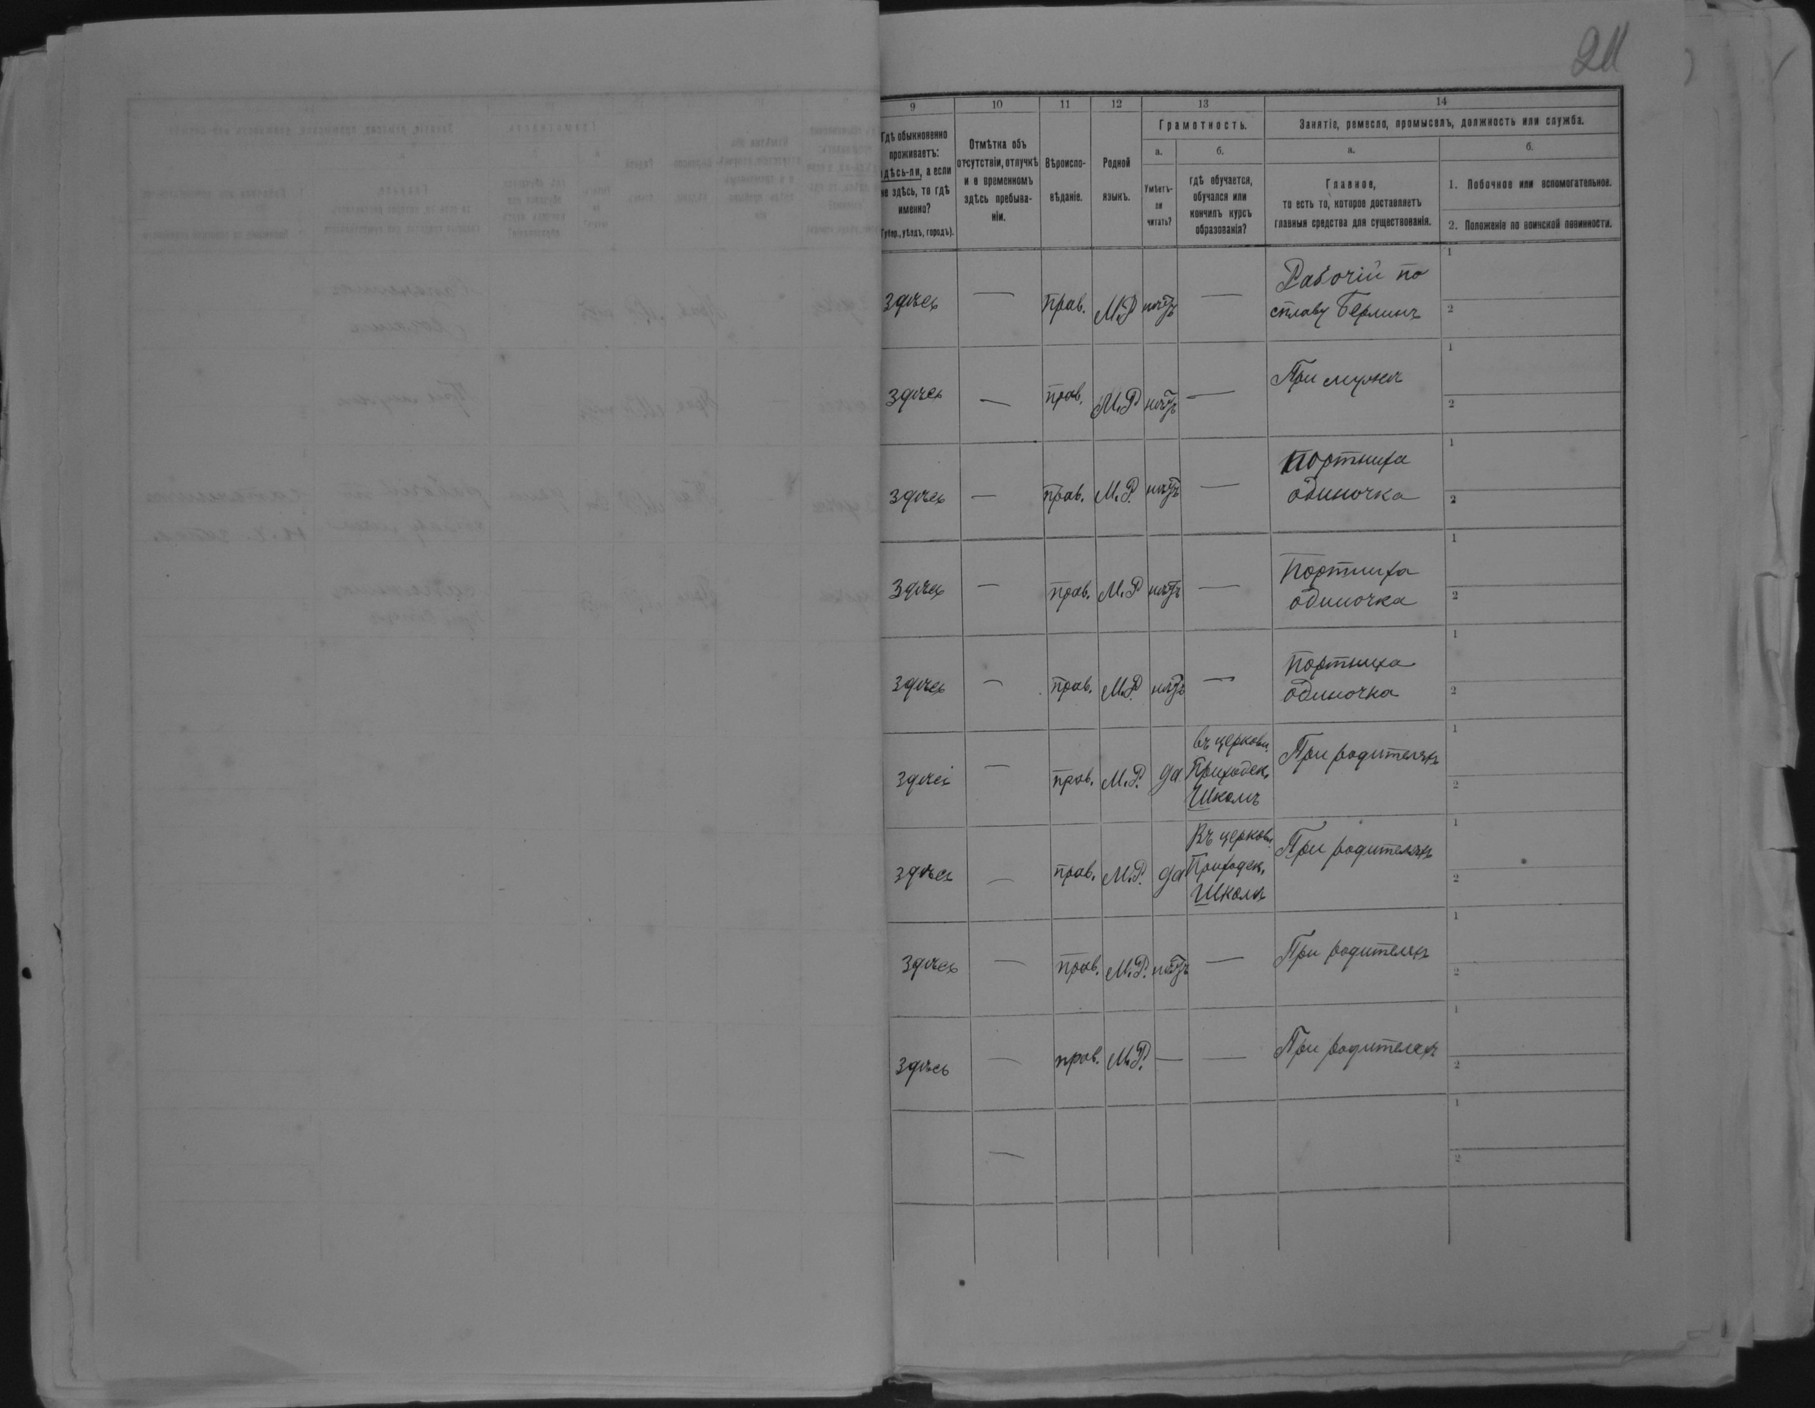 211
9 10 11 12 13 14
Гдѣ обыкновенно проживаетъ: здѣсь-ли, а если не здѣсь, то гдѣ именно? (Губер., уѣздъ, городъ).
Отмѣтка объ отсутствіи, отлучкѣ и о временномъ здѣсь пребываніи.
Вѣроисповѣданіе.
Родной языкъ.
Грамотность.
а. Умѣетъ-ли читать?
б. гдѣ обучается, обучался или кончилъ курсъ образованія?
Занятіе, ремесло, промыселъ, должность или служба.
а. Главное, то есть то, которое доставляетъ главныя средства для существованія.
б.
1. Побочное или вспомогательное.
2. Положеніе по воинской повинности.
здѣсь — прав. М.Р. нѣтъ — Рабочій по сплаву 1 2
здѣсь — прав. М.Р. нѣтъ — При мужѣ 1 2
здѣсь — прав. М.Р. нѣтъ — Портниха одиночка 1 2
здѣсь — прав. М.Р. нѣтъ — Портниха одиночка 1 2
здѣсь — прав. М.Р. нѣтъ — Портниха одиночка 1 2
здѣсь — прав. М.Р. да въ церковн. Приходск. Школѣ При родителяхъ 1 2
здѣсь — прав. М.Р. да Въ церковн. Приходск. Школѣ При родителяхъ 1 2
здѣсь — прав. М.Р. нѣтъ — При родителяхъ 1 2
здѣсь — прав. М.Р. — — При родителяхъ 1 2
— 1 2